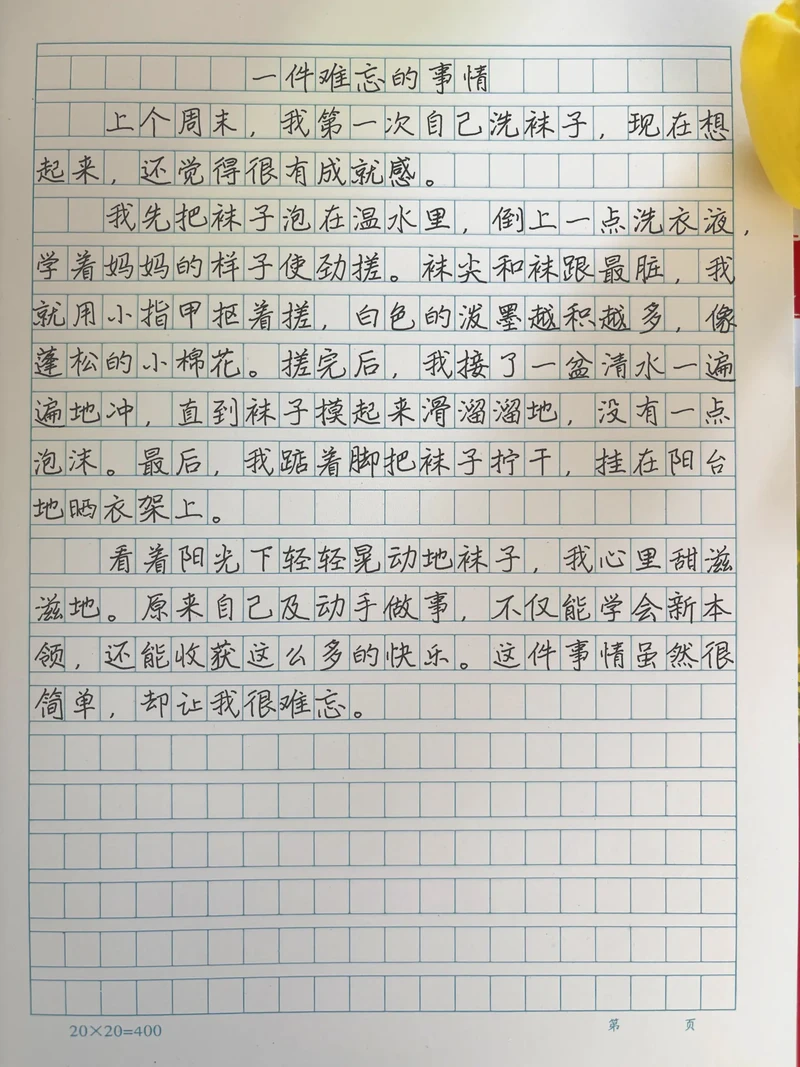 一件难忘的事情
上个周末，我第一次自己洗袜子，现在想
起来，还觉得很有成就感。
我先把袜子泡在温水里，倒上一点洗衣液，
学着妈妈的样子使劲搓。袜尖和袜跟最脏，我
就用小指甲抠着搓，白色的泼墨越积越多，像
蓬松的小棉花。搓完后，我接了一盆清水一遍
遍地冲，直到袜子摸起来滑溜溜地，没有一点
泡沫。最后，我踮着脚把袜子拧干，挂在阳台
地晒衣架上。
看着阳光下轻轻晃动地袜子，我心里甜滋
滋地。原来自己及动手做事，不仅能学会新本
领，还能收获这么多的快乐。这件事情虽然很
简单，却让我很难忘。
20×20=400
第 页